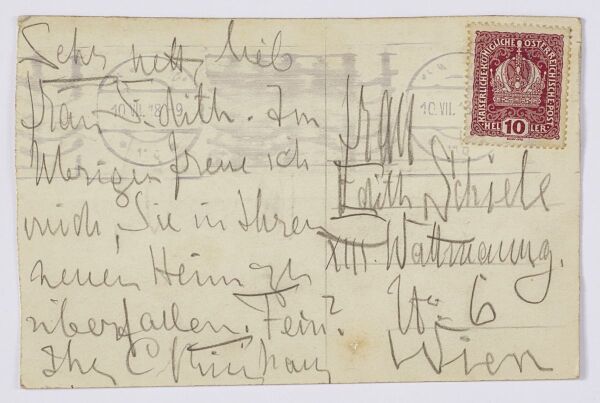 Sehr nett, lieb
Frau Edith. Im
Übrigen freue ich
mich, Sie in Ihrem
neuen Heim zu
überfallen. Fein?
Ihr C
Frau
Edith Schiele
XIII. Wattmanng.
No 6
Wien
KAISERLICHE KÖNIGLICHE ÖSTERREICHISCHE POST
HEL 10 LER
10.VII.18
10.VII.1